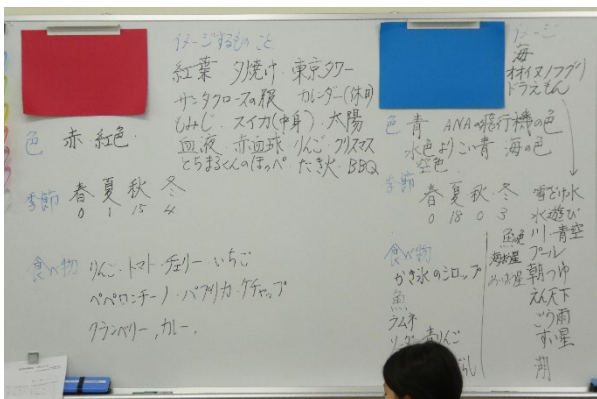 イメージするもの こと
紅葉 夕焼け・東京タワー
サンタクロースの服 カレンダー(休日)
もみじ・スイカ(中身)・太陽
血液・赤血球 りんご・クリスマス
とちまるくんのほっぺ・たき火・BBQ
色 赤 紅色・
季節 春 夏 秋 冬
0 1 15 4
食べ物 りんご・トマト・チェリー・いちご
ペペロンチーノ・パプリカ・ケチャップ
クランベリー,カレー,
イメージ
海
オオイヌノフグリ
ドラえもん
色 青 ANAの飛行機の色
水色よりこい青 海の色
空色
季節
春 夏 秋・冬
0 18 0 3
食べ物
かき氷のシロップ
魚
ラムネ
青りんご
雪どけ水
水遊び
川・青空
プール
朝つゆ
えん天下
ごう雨
すい星
湖